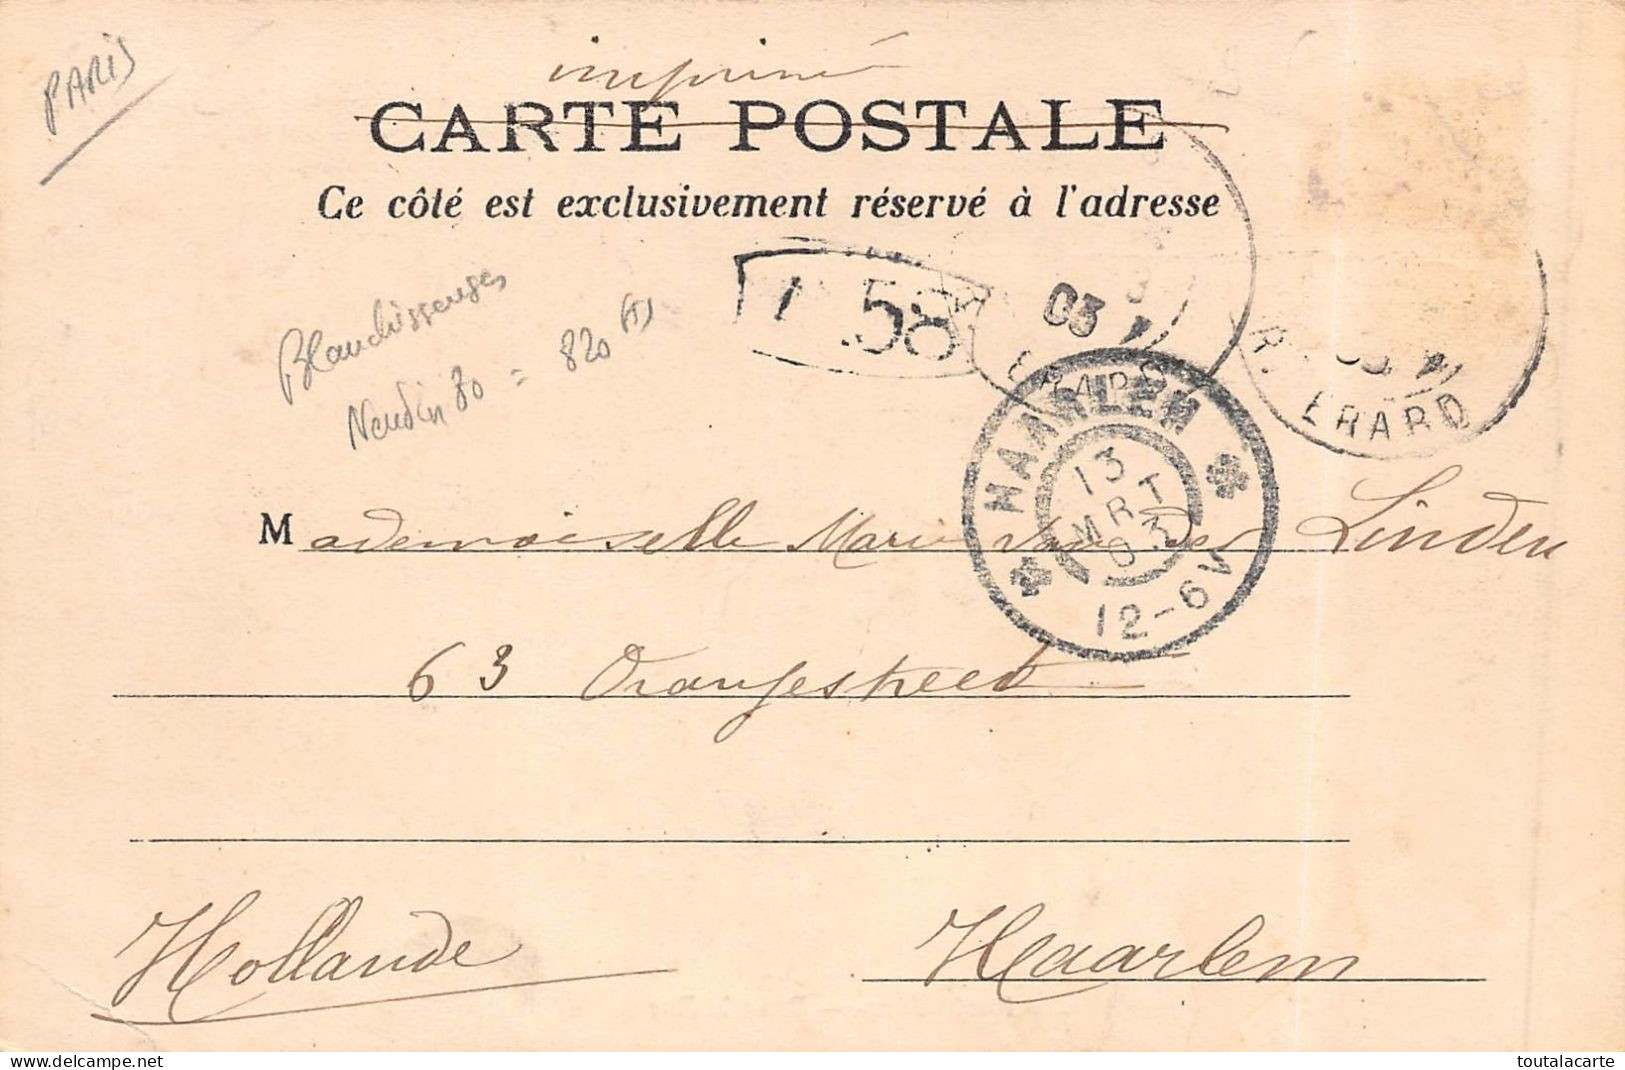 PARIS
imprimé
CARTE POSTALE
Ce côté est exclusivement réservé à l'adresse
Blanchisseuses
Naudin 80 = 820 (T)
58
03
ERARD
R. ERARD
HAARLEM
13
MRT
03
12-6V
Mademoiselle Marie van der Linden
63 Oranjestreet
Hollande
Haarlem
delcampe.net
toutalacarte